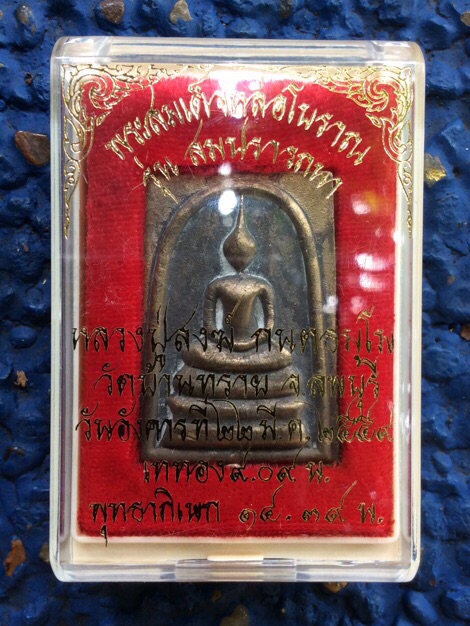 พระสมเด็จหล่อโบราณ
รุ่น สมปรารถนา
หลวงปู่สงฆ์
วัดบ้านทราย จ.ลพบุรี
วันอังคารที่๒๒ มี.ค. ๒๕๕๙
เททอง๙.๐๙ น.
พุทธาภิเษก ๑๔.๓๙ น.